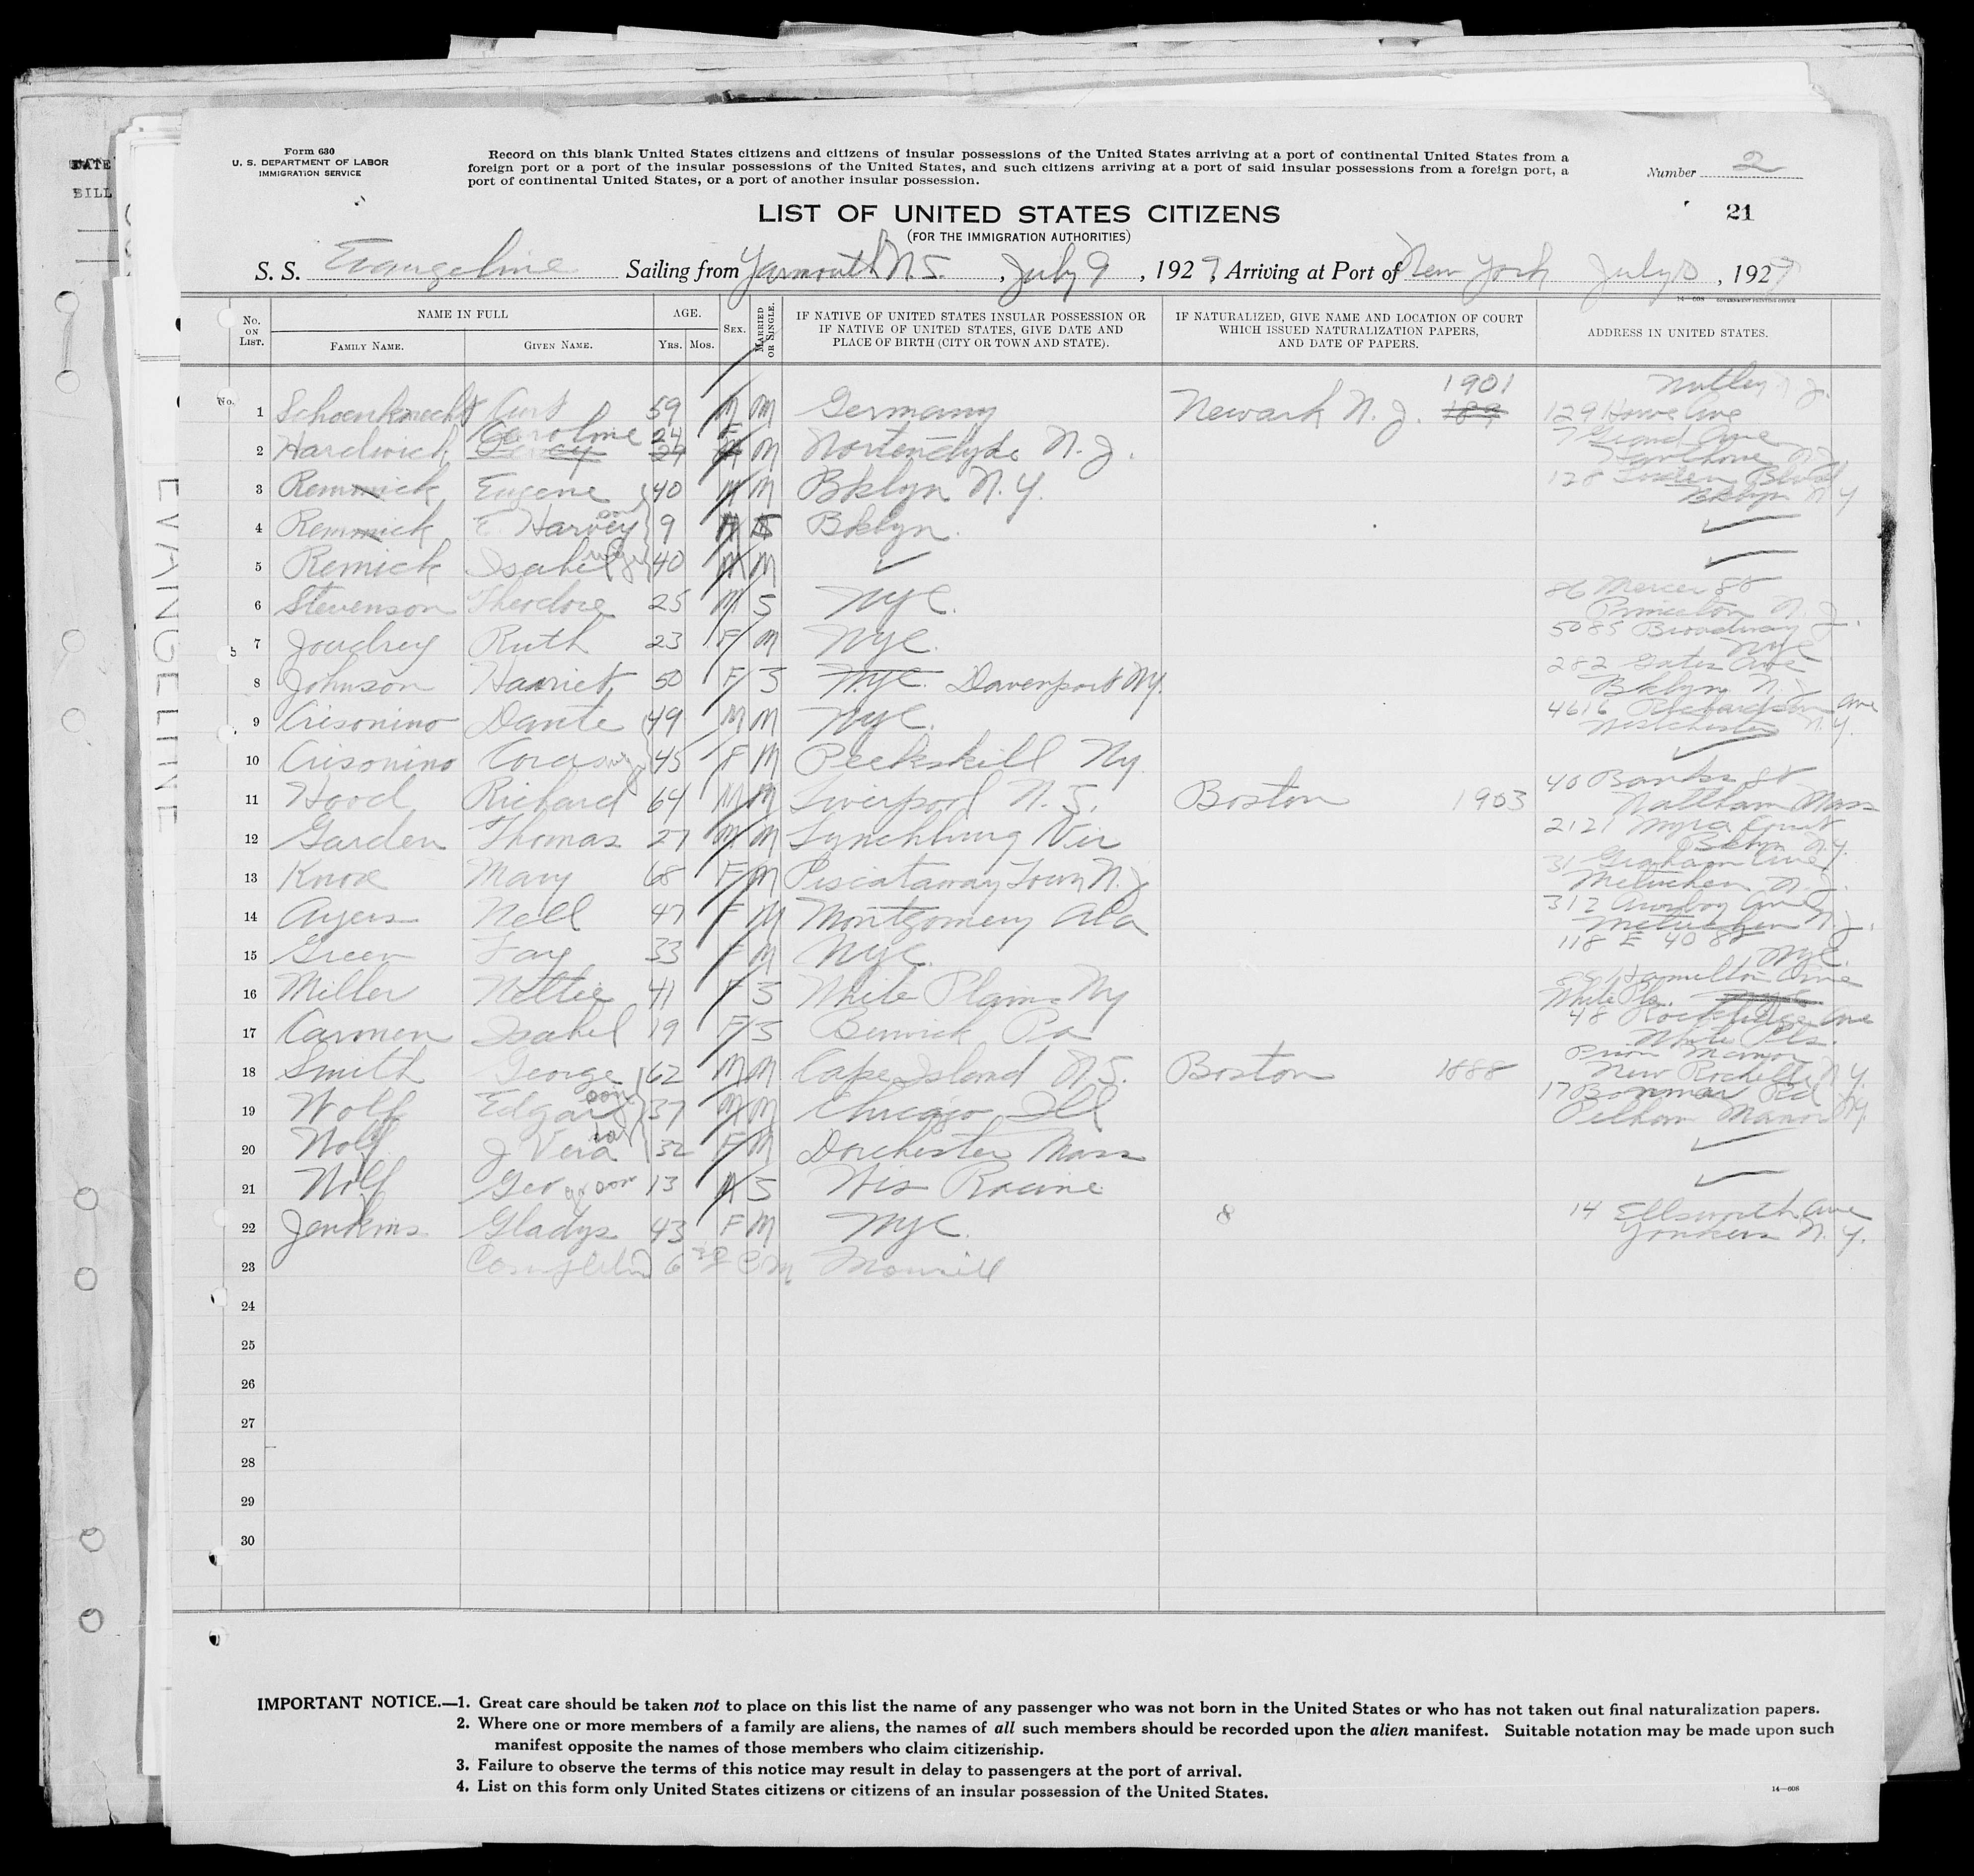 DATE
BILL
EVANGELINE
Form 630
U. S. DEPARTMENT OF LABOR
IMMIGRATION SERVICE
Record on this blank United States citizens and citizens of insular possessions of the United States arriving at a port of continental United States from a
foreign port or a port of the insular possessions of the United States, and such citizens arriving at a port of said insular possessions from a foreign port, a
port of continental United States, or a port of another insular possession.
Number 2
21
LIST OF UNITED STATES CITIZENS
(FOR THE IMMIGRATION AUTHORITIES)
S. S. Evangeline Sailing from Yarmouth N.S. , July 9 , 1927, Arriving at Port of New York July , 1927
14—608 GOVERNMENT PRINTING OFFICE
No. ON LIST. NAME IN FULL FAMILY NAME. GIVEN NAME. AGE. YRS. MOS. SEX. MARRIED OR SINGLE. IF NATIVE OF UNITED STATES INSULAR POSSESSION OR IF NATIVE OF UNITED STATES, GIVE DATE AND PLACE OF BIRTH (CITY OR TOWN AND STATE). IF NATURALIZED, GIVE NAME AND LOCATION OF COURT WHICH ISSUED NATURALIZATION PAPERS, AND DATE OF PAPERS. ADDRESS IN UNITED STATES.
No.
1 Schoenknecht Curt 59 M M Germany Newark N. J. 1901 129 Howe Ave Nutley N. J.
2 Hardwick Caroline 24 F M N. J. 7 Grand Ave
3 Remick Eugene 40 M M Bklyn N. Y. 128 Blvd Bklyn N Y
4 Remick E. Harvey son 9 M S Bklyn. ✓
5 Remick Isabel wife 40 M M ✓ ✓
6 Stevenson Theodore 25 M S NYC. 86 Mercer St Princeton N. J.
7 Joudrey Ruth 23 F M NYC. 5085 Broadway NYC
8 Johnson Harriet 50 F S NYC. Davenport NY. 282 Gates Ave Bklyn N. Y.
9 Crisonino Dante 49 M M NYC. 4616 Richardson Ave Westchester N. Y.
10 Crisonino Cora 45 F M Peekskill Ny ✓
11 Hood Richard 64 M M Liverpool N. S. Boston 1903 40 Banks St Waltham Mass
12 Garden Thomas 27 M M Lynchburg Vir 2121 Court Bklyn N.Y.
13 Knox Mary 68 F M Piscataway Town N. J. 31 Graham Ave Metuchen N. J.
14 Ayers Nell 47 F M Montgomery Ala 312 Amboy Ave Metuchen N J.
15 Green Fay 33 F M NYC. 118 E 40 St NYC.
16 Miller Nettie 41 F S White Plains Ny Hamilton Ave White Pls.
17 Carmen Isabel 19 F S Berwick Pa 48 Rockledge Ave White Pls.
18 Smith George 62 M M Cape Island N.S. Boston 1888 Manor New Rochelle N Y.
19 Wolf Edgar son 37 M M Chicago Ill 17 Bonmar Rd Pelham Manor NY
20 Wolf J Vera 32 F M Dorchester Mass ✓
21 Wolf Geo gr son 13 M S Wis Racine ✓
22 Jenkins Gladys 43 F M NYC. 8 14 Ellsworth Ave Yonkers N. Y.
23
24
25
26
27
28
29
30
IMPORTANT NOTICE.—1. Great care should be taken not to place on this list the name of any passenger who was not born in the United States or who has not taken out final naturalization papers.
2. Where one or more members of a family are aliens, the names of all such members should be recorded upon the alien manifest. Suitable notation may be made upon such
manifest opposite the names of those members who claim citizenship.
3. Failure to observe the terms of this notice may result in delay to passengers at the port of arrival.
4. List on this form only United States citizens or citizens of an insular possession of the United States.
14—608